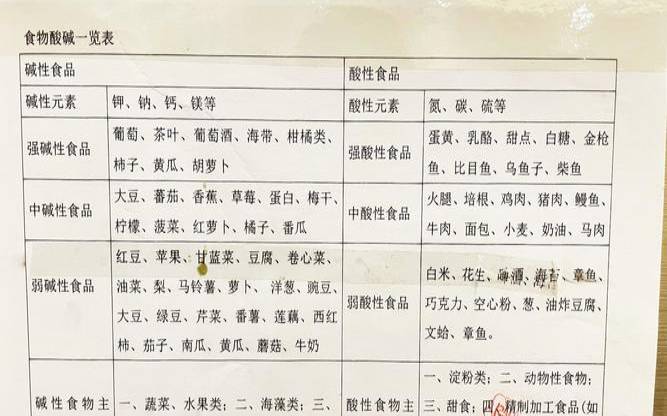 食物酸碱一览表
碱性食品
酸性食品
碱性元素
钾、钠、钙、镁等
酸性元素
氮、碳、硫等
强碱性食品
葡萄、茶叶、葡萄酒、海带、柑橘类、
柿子、黄瓜、胡萝卜
强酸性食品
蛋黄、乳酪、甜点、白糖、金枪
鱼、比目鱼、乌鱼子、柴鱼
中碱性食品
大豆、蕃茄、香蕉、草莓、蛋白、梅干、
柠檬、菠菜、红萝卜、橘子、番瓜
中酸性食品
火腿、培根、鸡肉、猪肉、鳗鱼、
牛肉、面包、小麦、奶油、马肉
弱碱性食品
红豆、苹果、甘蓝菜、豆腐、卷心菜、
油菜、梨、马铃薯、萝卜、洋葱、豌豆、
大豆、绿豆、芹菜、番薯、莲藕、西红
柿、茄子、南瓜、黄瓜、蘑菇、牛奶
弱酸性食品
白米、花生、海苔、章鱼、
巧克力、空心粉、葱、油炸豆腐、
文蛤、章鱼。
碱性食物主
一、蔬菜、水果类；二、海藻类；三、
酸性食物主
一、淀粉类；二、动物性食物；
三、甜食；四、精制加工食品(如